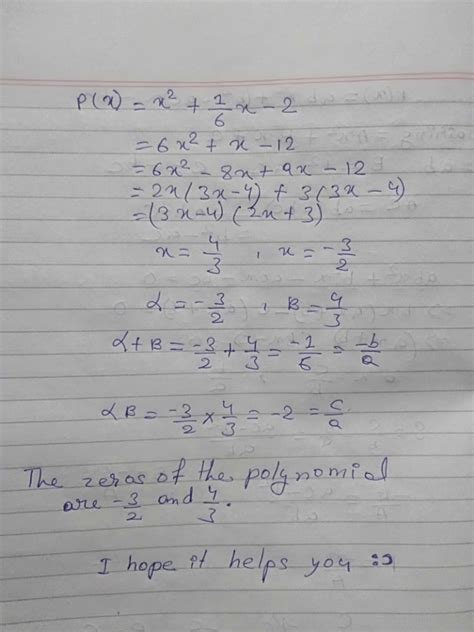 P(x) = x² + 1/6 x - 2
= 6x² + x - 12
= 6x² - 8x + 9x - 12
= 2x(3x-4) + 3(3x-4)
= (3x-4)(2x+3)
x = 4/3 , x = -3/2
α = -3/2 , B = 4/3
α+B = -3/2 + 4/3 = -1/6 = -b/a
αB = -3/2 × 4/3 = -2 = c/a
The zeros of the polynomial
are -3/2 and 4/3.
I hope it helps you :)